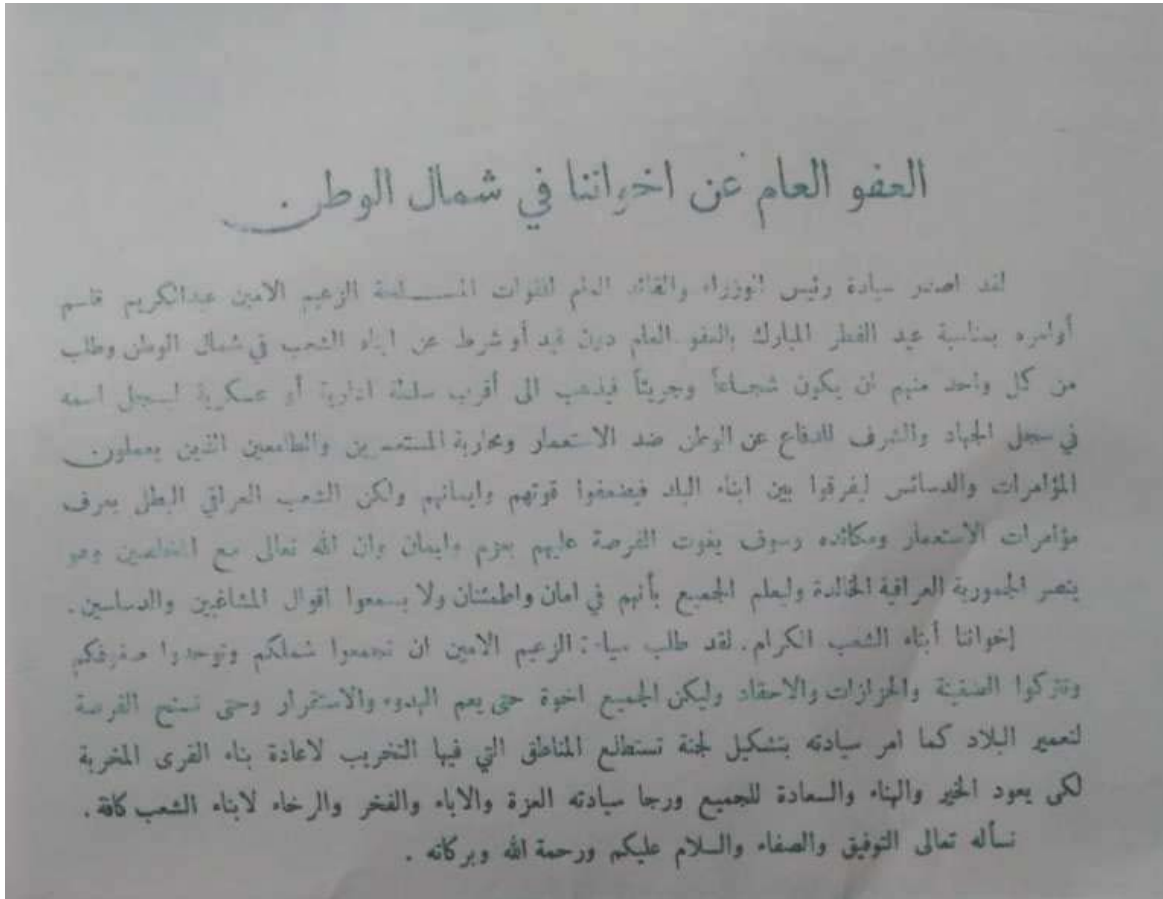 العفو العام عن اخواننا في شمال الوطن
لقد اصدر سيادة رئيس الوزراء والقائد العام للقوات المسلحة الزعيم الامين عبدالكريم قاسم
أوامره بمناسبة عيد الفطر المبارك بالعفو العام دون قيد أو شرط عن ابناء الشعب في شمال الوطن وطلب
من كل واحد منهم ان يكون شجاعاً وجريئاً فيذهب الى أقرب سلطة ادارية أو عسكرية ليسجل اسمه
في سجل الجهاد والشرف للدفاع عن الوطن ضد الاستعمار ومحاربة المستعمرين والطامعين الذين يعملون
المؤامرات والدسائس ليفرقوا بين ابناء البلد فيضعفوا قوتهم وايمانهم ولكن الشعب العراقي البطل يعرف
مؤامرات الاستعمار ومكائده وسوف يفوت الفرصة عليهم بعزم وايمان وان الله تعالى مع المخلصين وهو
ينصر الجمهورية العراقية الخالدة وليعلم الجميع بأنهم في امان واطمئنان ولا يسمعوا اقوال المشاغبين والدساسين.
إخواننا أبناء الشعب الكرام. لقد طلب سيادة الزعيم الامين ان تجمعوا شملكم وتوحدوا صفوفكم
وتتركوا الضغينة والحزازات والاحقاد وليكن الجميع اخوة حتى يعم الهدوء والاستقرار وحتى تسنح الفرصة
لتعمير البلاد كما امر سيادته بتشكيل لجنة تستطلع المناطق التي فيها التخريب لاعادة بناء القرى المخربة
لكي يعود الخير والهناء والسعادة للجميع ورجا سيادته العزة والاباء والفخر والرخاء لابناء الشعب كافة.
نسأله تعالى التوفيق والصفاء والسلام عليكم ورحمة الله وبركاته.